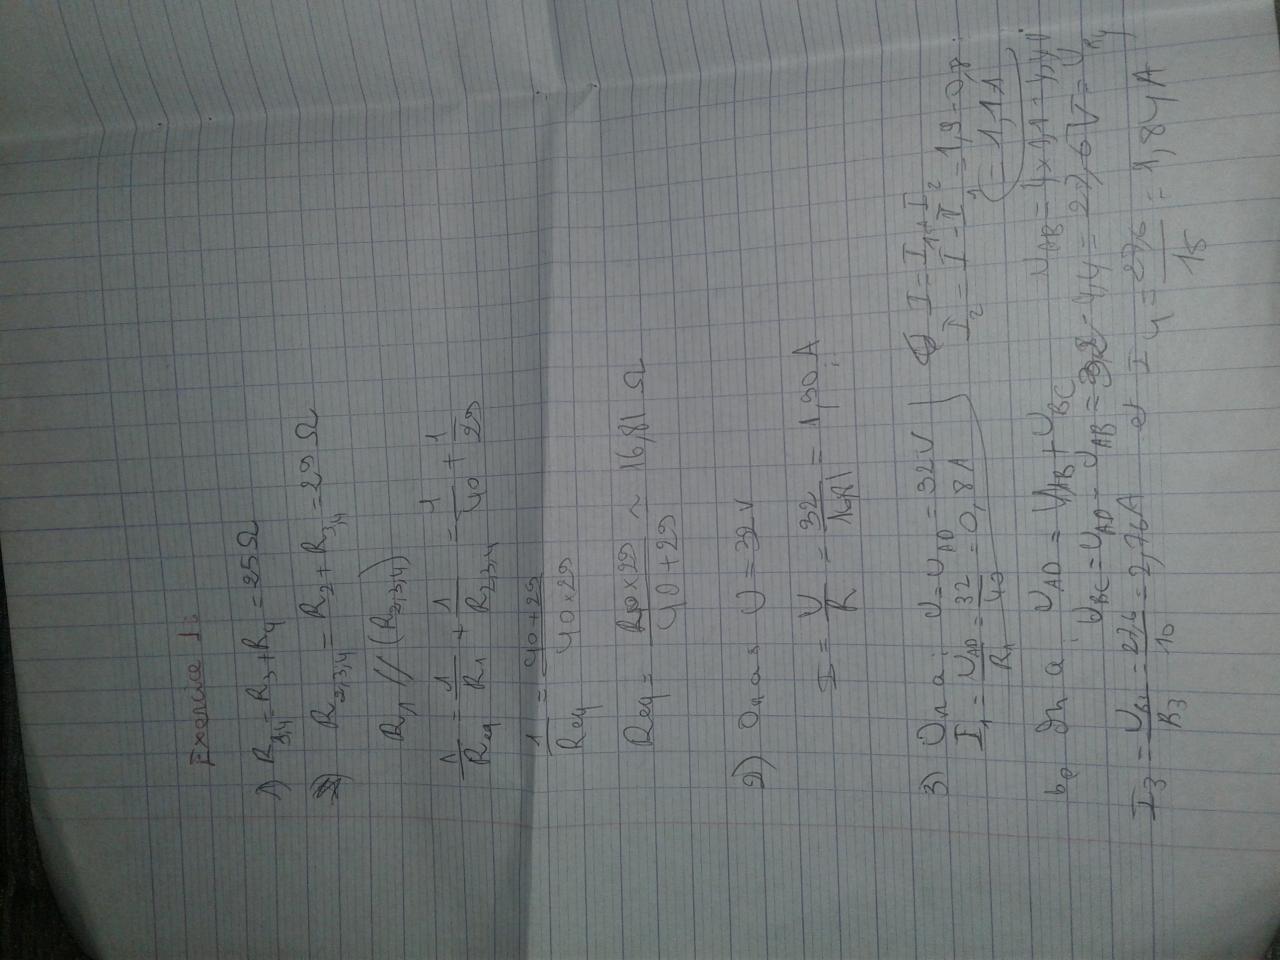 Exercice 1:
1) R3,4 = R3 + R4 = 25 Ω
R2,3,4 = R2 + R3,4 = 29 Ω
R1 // (R2,3,4)
1/Req = 1/R1 + 1/R2,3,4 = 1/40 + 1/29
1/Req = 40+29/40×29
Req = 40×29/40+29 ~ 16,81 Ω
2) On as U = 32V
I = U/R = 32/16,81 = 1,90A
3) On a: U = UAD = 32V
I1 = UAD/R1 = 32/40 = 0,8A
I = I1 + I2
I2 = I - I1 = 1,9 - 0,8
= 1,1A
b. On a: UAD = UAB + UBC
UAB = 4 × 1,1 = 4,4V
UBC = UAD - UAB = 32 - 4,4 = 27,6V = UR4
I3 = UBC/R3 = 27,6/10 = 2,76A et I4 = 27,6/15 = 1,84A